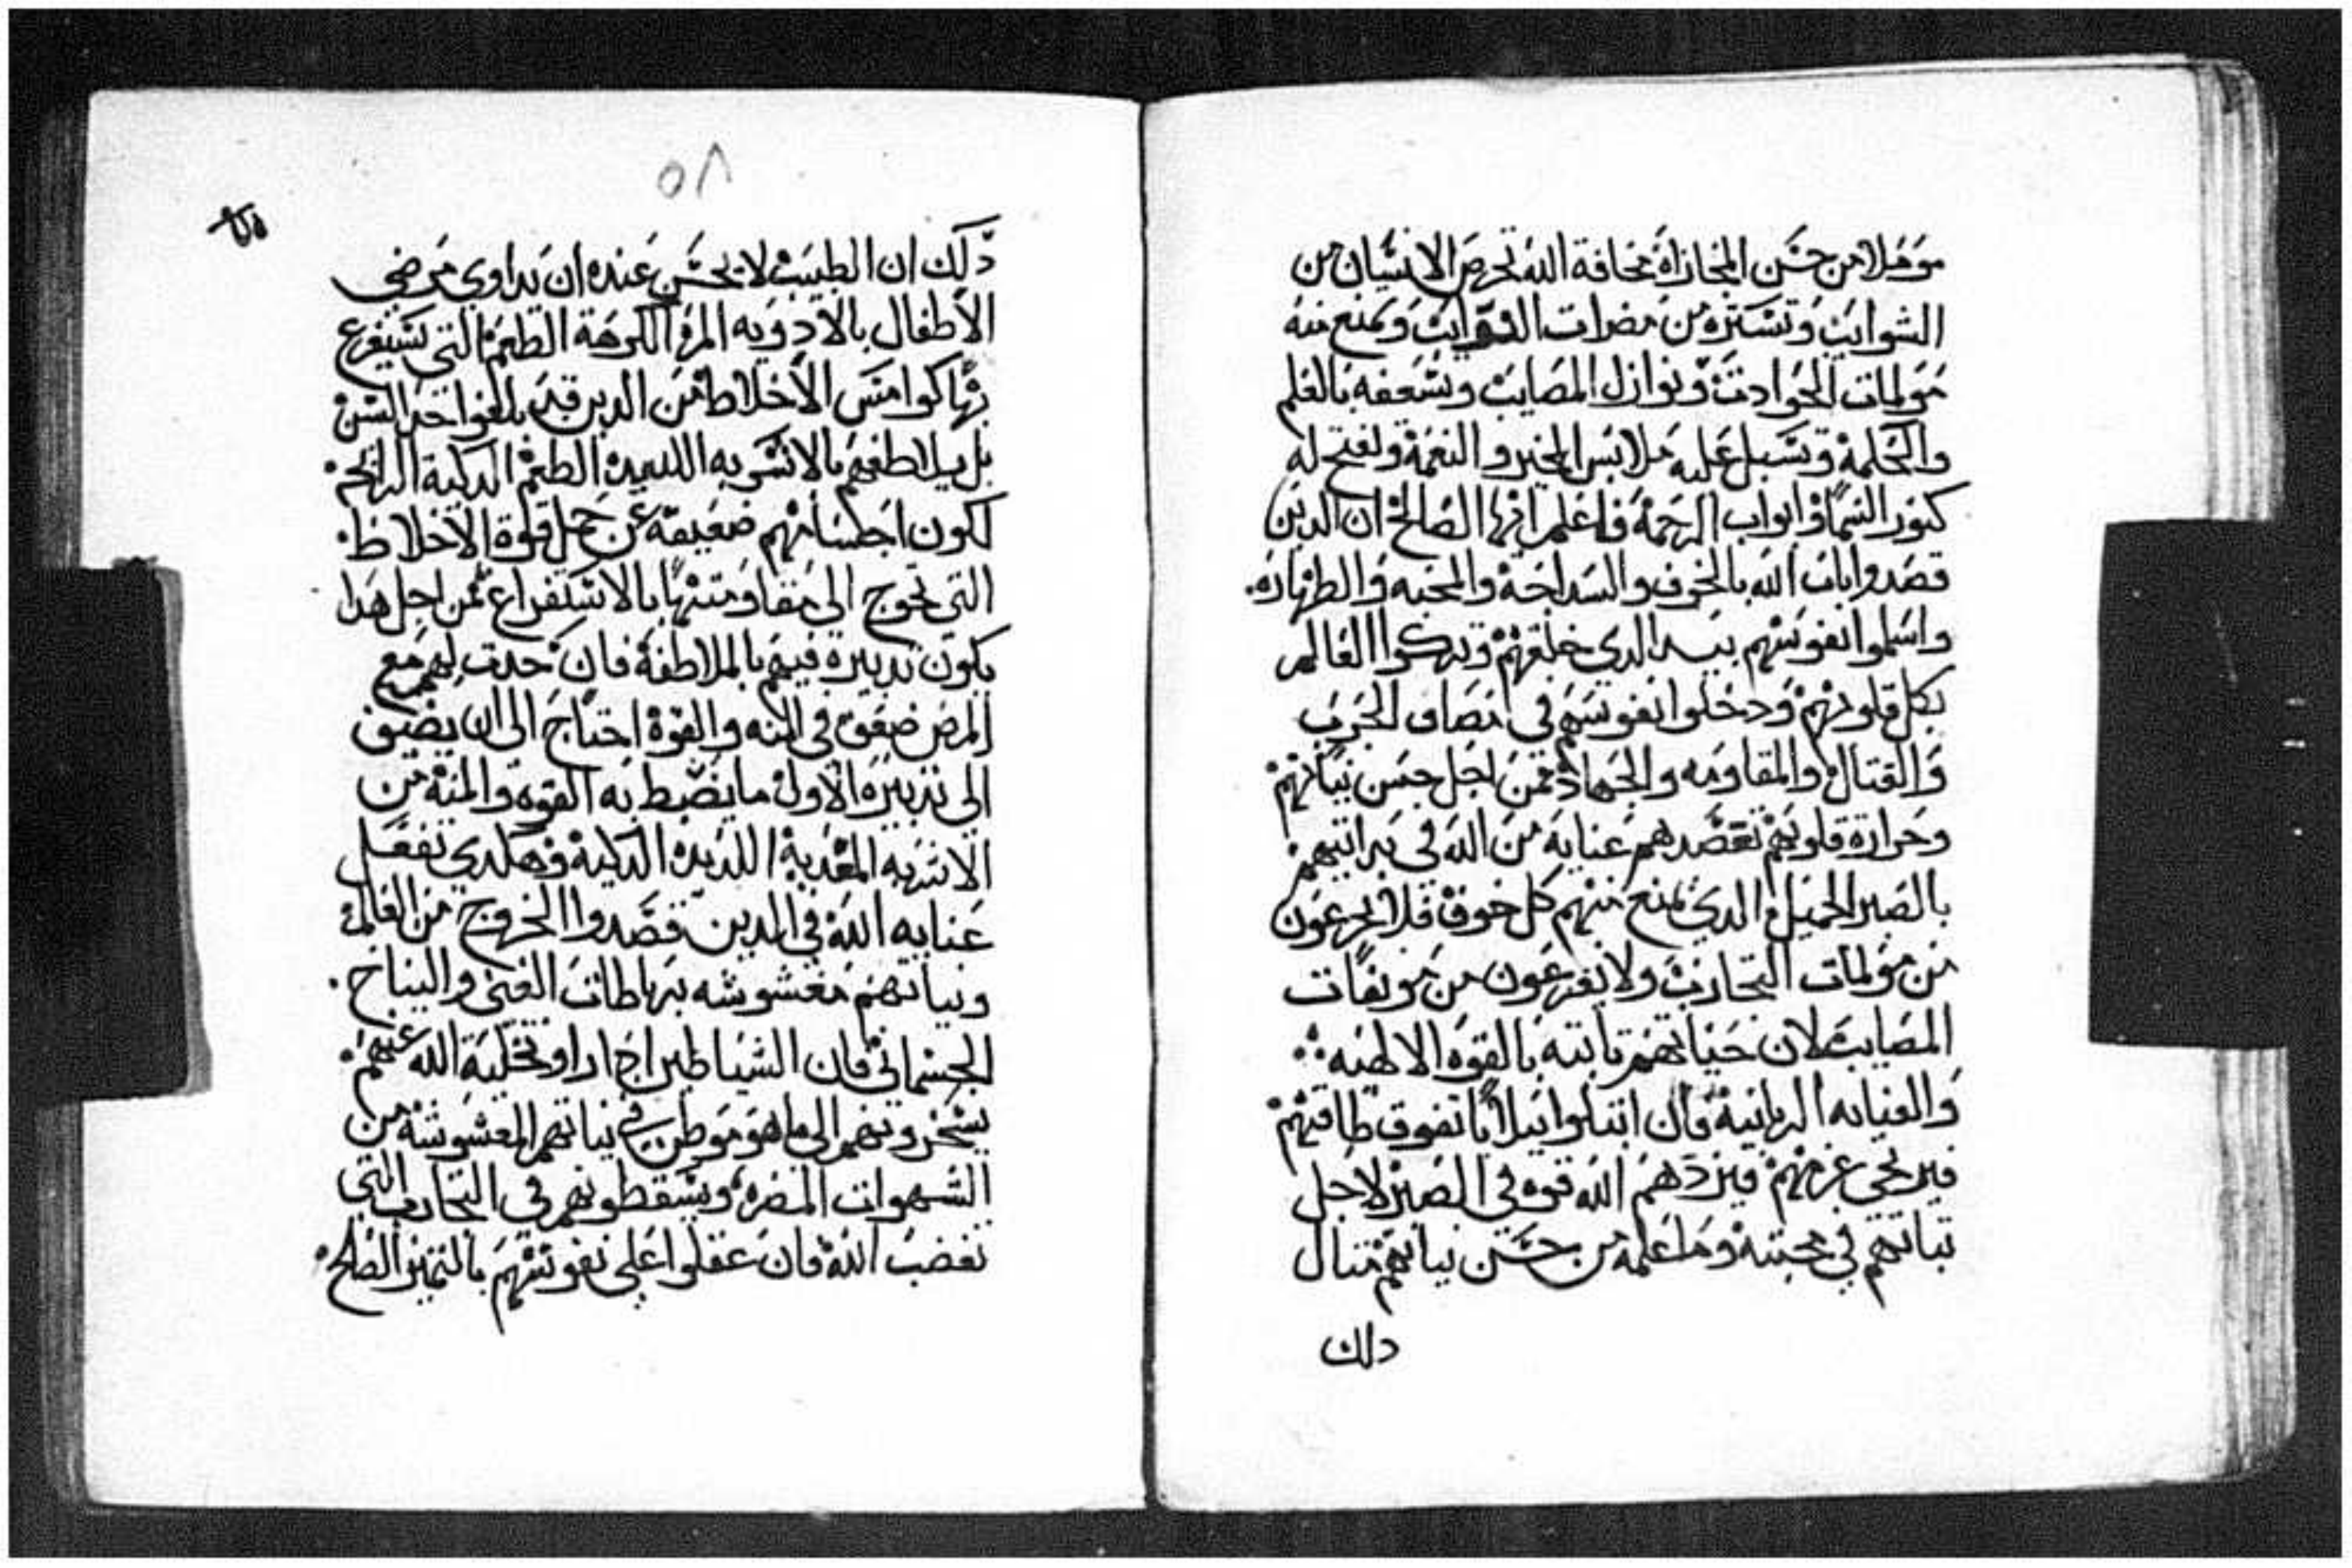 موملا من حسن المجازاة مخافة الله تحرص الانسان من
الشوايب وتستره من مضرات النوايب وتمنع منه
مولمات الحوادث ونوازل المصايب وتسعفه بالعلم
والحكمة وتسبل عليه ملابس الخير والنعمة وتفتح له
كنوز السما وابواب الرحمة فاعلم ايها الصالح ان الدين
قصدوا باب الله بالخوف والسداجة والمحبه والطهاره.
واسلموا نفوسهم بيد الدي خلقهم وتركوا العالم
بكل قلوبهم ودخلوا بنفوسهم في مصاف الحرب
والقتال والمقاومه والجهاد فمن اجل حسن نياتهم
وحرارة قلوبهم تقصدهم عناية من الله في بداتيهم
بالصبر الجميل الدي يمنع منهم كل خوف فلا يجزعون
من مولمات التجارب ولا يفزعون من موبقات
المصايب لان حياتهم تابته بالقوه الالهيه
والعنايه الربانية فان ابتلوا ببلايا تفوق طاقتهم
فيرتخي عزمهم فيزدهم الله قوه في الصبر لاجل
تباتهم في محبته وما علمه من حسن نياتهم متال
دلك
٥٨
دلك ان الطبيب لا يحسن عنده ان يداوي مرضي
الاطفال بالادويه المرة الكرهة الطعم التي تستفرع
بها كوامنس الاخلاط من الدين قد بلغوا حد السن
بل يلاطفهم بالاشربه اللديدة الطعم الدكية الرايحه
لكون اجسامهم ضعيفة عن حمل قوة الاخلاط.
التي تحوج الى مقاومتها بالاستفراغ فمن اجل هدا
يكون تدبيره فيهم بالملاطفة فان حدث لهم مع
المرض ضعف في المنه والقوة احتاج الى ان يضيف
الى تدبيره الاول ما يضبط به القوه والمنة من
الاشربه المغدية اللديده الدكية وهكدي تفعل
عنايه الله في الدين قصدوا الخروج من العالم
ونياتهم مغشوشه برباطات الغنى والنياح.
الجسماني فان الشياطين ادا راو تخلية الله عنهم.
يسخرونهم الى ما هو موطن في نياتهم المغشوشة من
الشهوات المضره ويسقطونهم في التجارب التي
تغضب الله فان عقلوا على نفوسهم بالتميز الصالح.